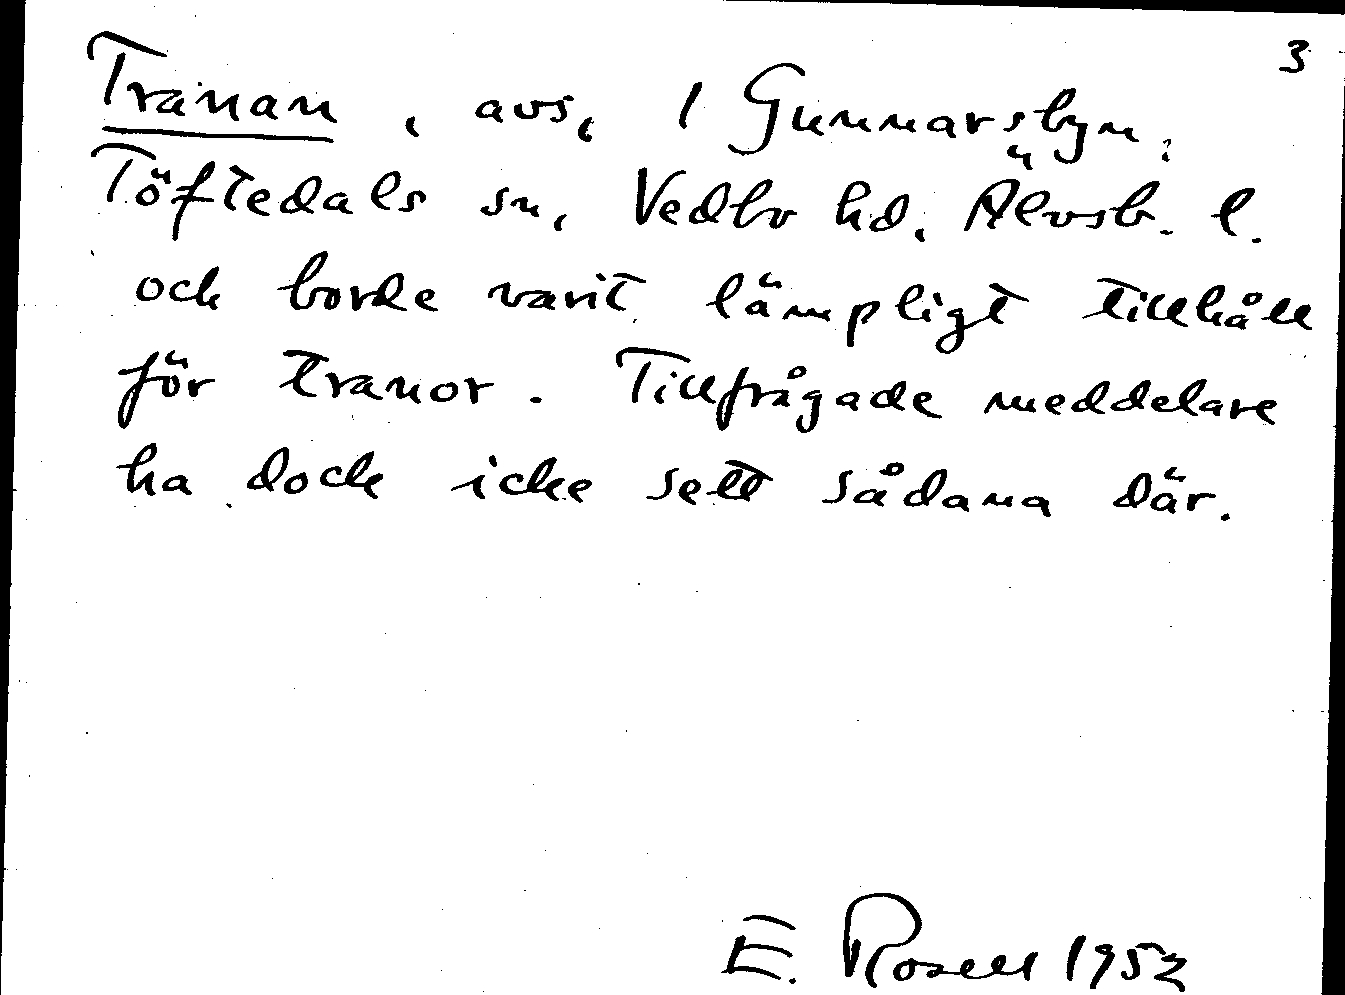 3
Tranan, avs., 1 Gunnarsbyn,
Töftedals sn, Vedbo hd, Älvsb. l.
och borde varit lämpligt tillhåll
för tranor. Tillfrågade meddelare
ha dock icke sett sådana där.
E. Rosell 1952